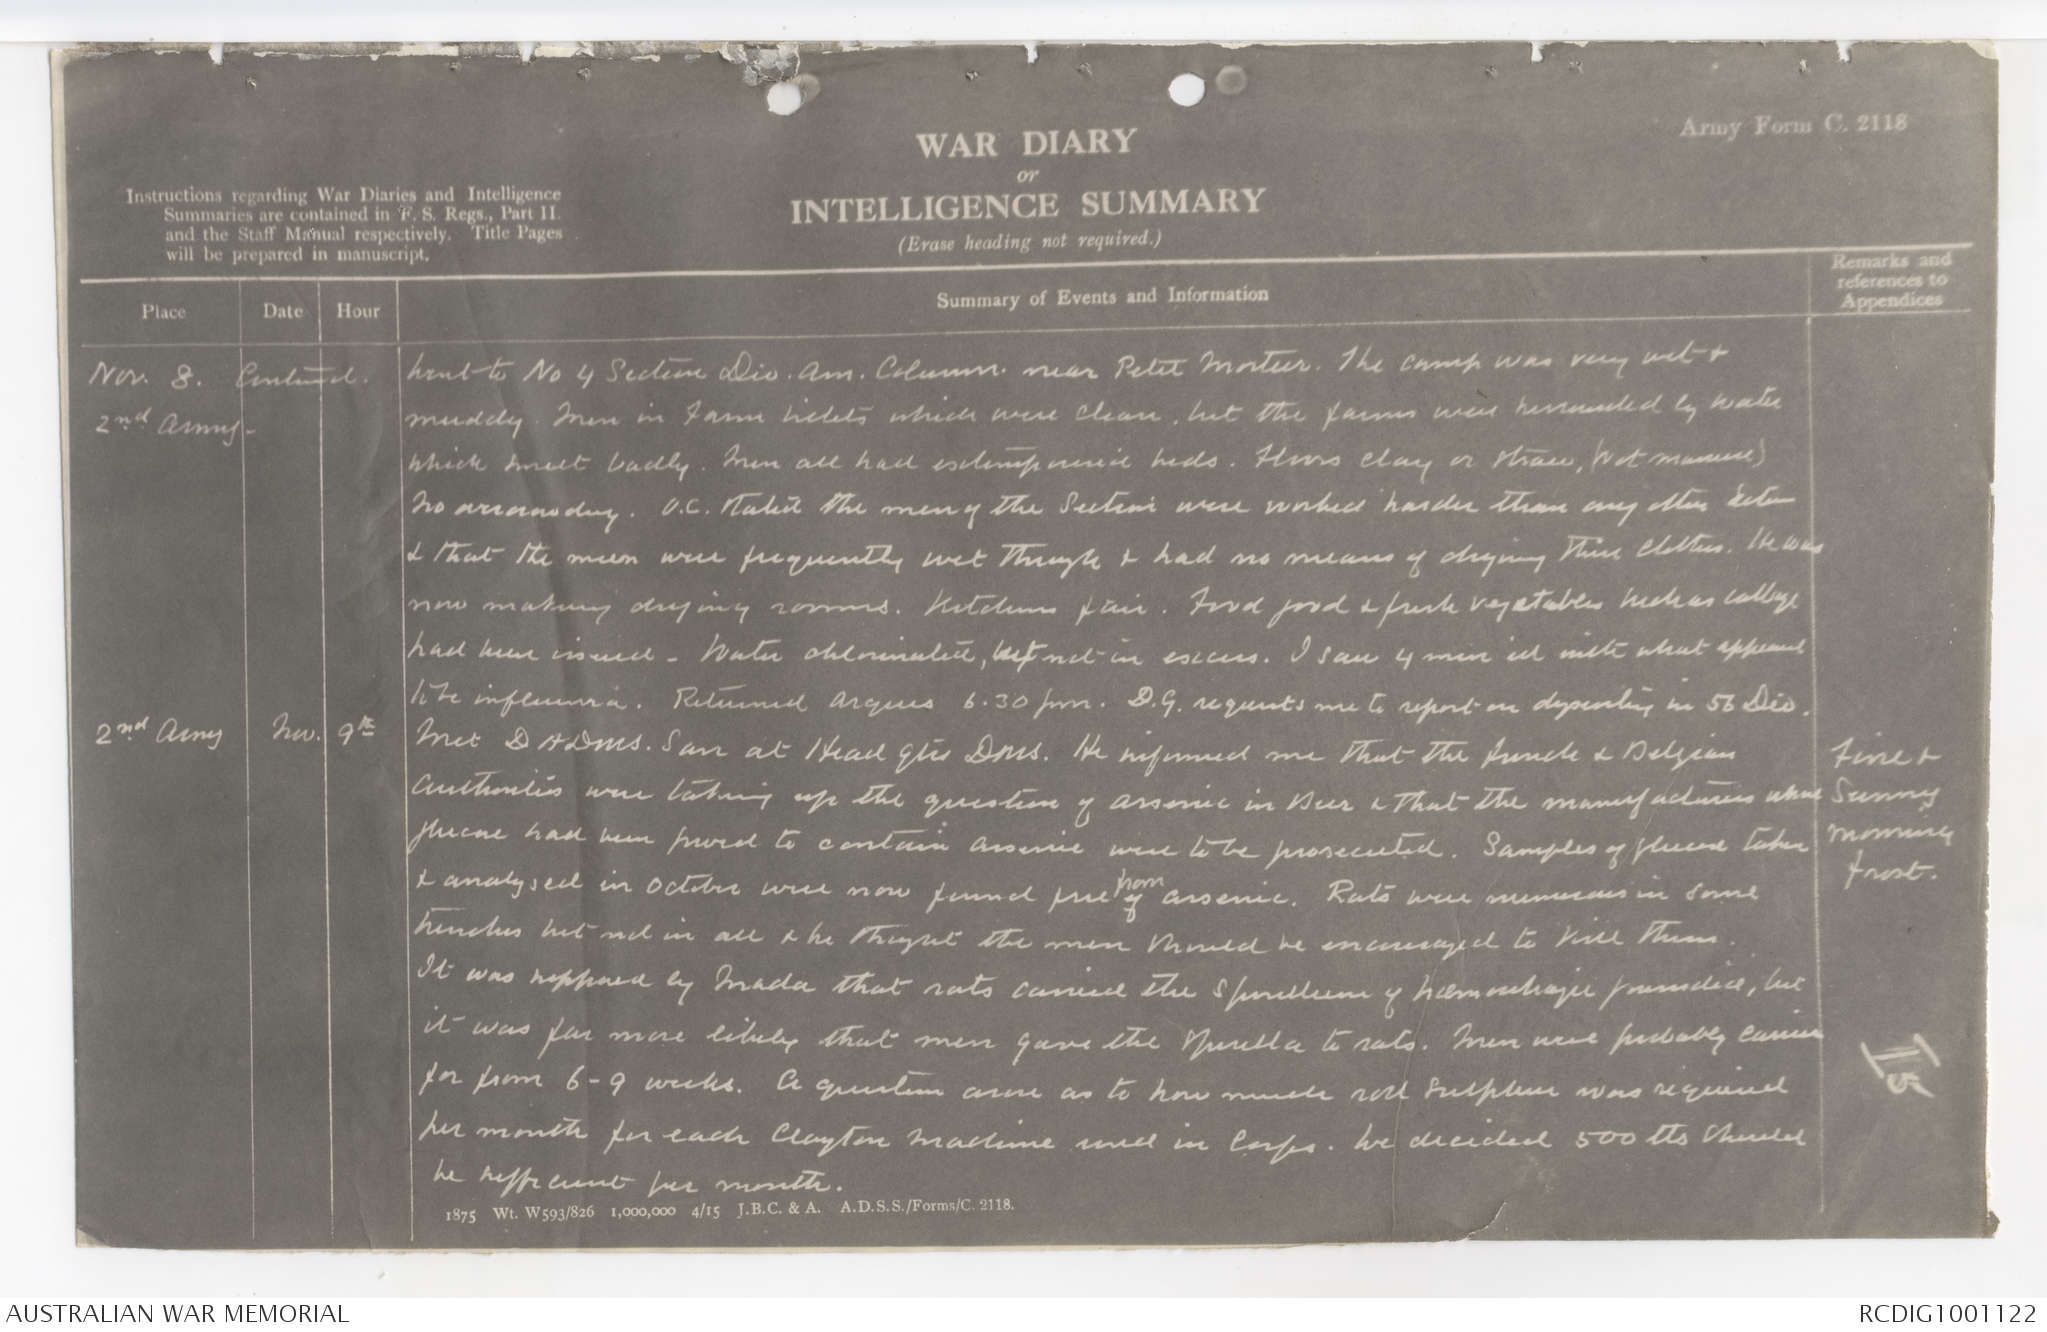 Army Form C. 2118
WAR DIARY
or
INTELLIGENCE SUMMARY
(Erase heading not required.)
Instructions regarding War Diaries and Intelligence
Summaries are contained in F. S. Regs., Part II.
and the Staff Manual respectively. Title Pages
will be prepared in manuscript.
Place Date Hour Summary of Events and Information
Remarks and
references to
Appendices
Nov. 8. Continued. Went to No 4 Section Div. Am. Column. near Petit Mortier. The camp was very wet &
2nd Army - muddy. Men in farm billets which were clean, but the farms were surrounded by water
which smelt badly. Men all had extemporised beds. Floors clay or straw, (not manure)
No overcrowding. O.C. stated the men of the Section were worked harder than any other Section
& that the men were frequently wet through & had no means of drying their clothes. He was
now making drying rooms. Kitchens fair. Food good & fresh vegetables such as cabbage
had been issued - Water chlorinated, but not in excess. I saw 4 men ill with what appeared
to be influenza. Returned Arques 6.30 pm. D.G. requests me to report on dysentery in 56 Div.
2nd Army Nov. 9th Met DADMS. San at Head qtrs DMS. He informed me that the French & Belgian
authorities were taking up the question of arsenic in Beer & that the manufacturers whose
glucose had been proved to contain arsenic were to be prosecuted. Samples of glucose taken
& analysed in October were now found free from of arsenic. Rats were numerous in some
trenches but not in all & he thought the men should be encouraged to kill them.
It was supposed by that rats carried the Spirillum of haemorrhagic jaundice, but
it was far more likely that men gave the Spirilla to rats. Men were probably carriers
for from 6-9 weeks. A question arose as to how much roll sulphur was required
per month for each Clayton Machine used in Corps. We decided 500 lbs should
be sufficient per month.
Fine &
Sunny
morning
frost.
115
1875 Wt. W593/826 1,000,000 4/15 J.B.C. & A. A.D.S.S./Forms/C. 2118.
AUSTRALIAN WAR MEMORIAL
RCDIG1001122